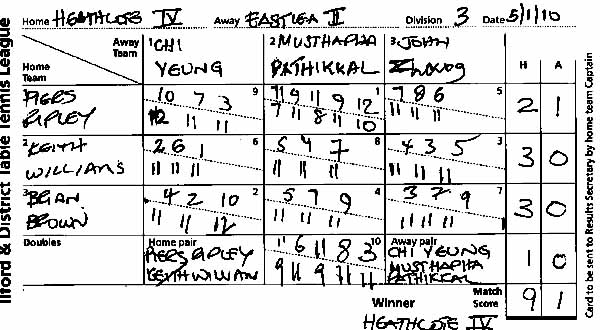 Home HEATHCOTE IV Away EASTLEA II Division 3 Date 5/1/10
Ilford & District Table Tennis League
Away Team
Home Team
1 CHI YEUNG
2 MUSTHAPHA PATHIKKAL
3 JOHN Zhuong
H A
PIERS RIPLEY
10 7 3 9
12 11 11
11 9 11 9 12 1
7 11 8 11 10
7 8 6 5
11 11 11
2 1
2 KEITH WILLIAMS
2 6 1 6
11 11 11
5 4 7 8
11 11 11
4 3 5 3
11 11 11
3 0
3 BRIAN BROWN
4 2 10 2
11 11 12
5 7 9 4
11 11 11
3 7 9 7
11 11 11
3 0
Doubles
Home pair
PIERS RIPLEY
KEITH WILLIAMS
11 6 11 8 3 10
9 11 9 11 11
Away pair
CHI YEUNG
MUSTHAPHA
PATHIKKAL
1 0
Winner
HEATHCOTE IV
Match Score
9 1
Card to be sent to Results Secretary by home team Captain